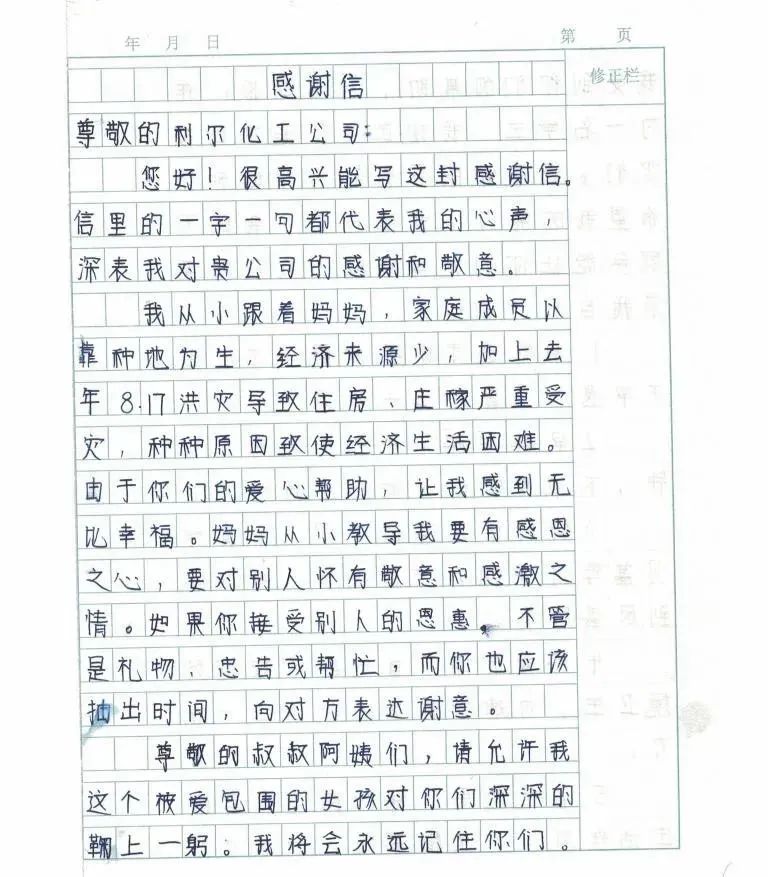 年 月 日 第 页
感谢信
修正栏
尊敬的利尔化工公司：
您好！很高兴能写这封感谢信。
信里的一字一句都代表我的心声，
深表我对贵公司的感谢和敬意。
我从小跟着妈妈，家庭成员以
靠种地为生，经济来源少，加上去
年8.17洪灾导致住房、庄稼严重受
灾，种种原因致使经济生活困难。
由于你们的爱心帮助，让我感到无
比幸福。妈妈从小教导我要有感恩
之心，要对别人怀有敬意和感激之
情。如果你接受别人的恩惠，不管
是礼物、忠告或帮忙，而你也应该
抽出时间，向对方表达谢意。
尊敬的叔叔阿姨们，请允许我
这个被爱包围的女孩对你们深深的
鞠上一躬。我将会永远记住你们。